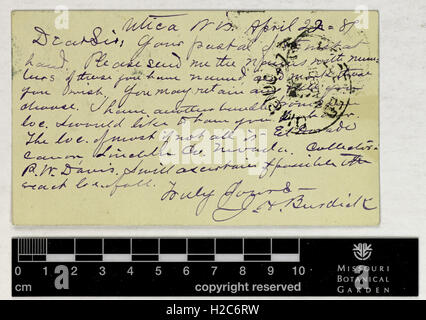 Utica N.Y. April 22 - 8
Dear Sir, Your postal
hand. Please send me the names with num-
bers of these you have named
you wish. You may retain as you
choose. I have another bundle
loc. I would like to have you
The loc. of most if not all is Eldorado
canon Lincoln Co. Nevada. Collector -
R. W. Davis. I will ascertain if possible the
exact loc. of all.
Truly Yours
J. H. Burdick
1 2 3 4 5 6 7 8 9 10
cm
copyright reserved
MISSOURI
BOTANICAL
GARDEN
alamy
Image ID: H2C6RW
www.alamy.com